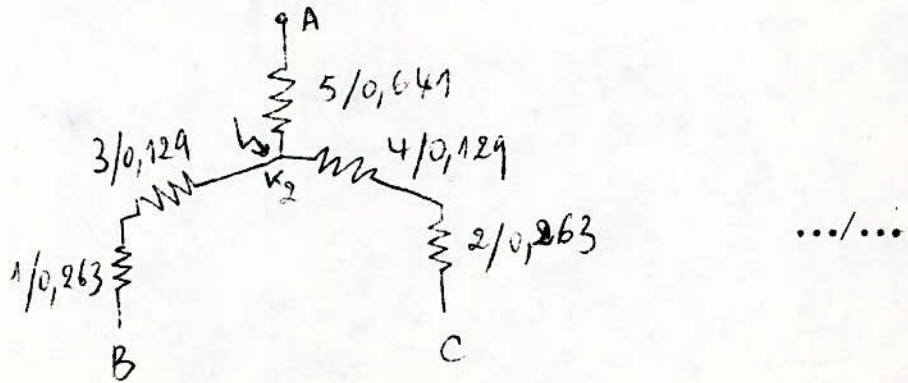 A
5/0,641
3/0,129
4/0,129
K2
2/0,263
…/…
1/0,263
B
C